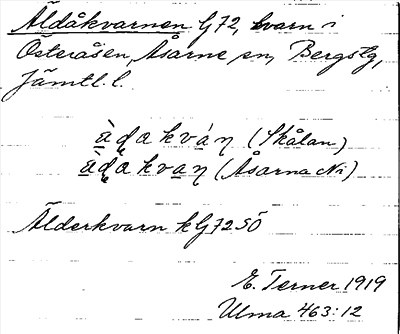 Äldåkvarnen G72, kvarn i
Österåsen, Åsarne sn, Bergs tg,
Jämtl. l.
àd̥a kván (Skålan)
àd̥a kvan (Åsarna Ni)
Älderkvarn kG72SÖ
E. Terner 1919
Ulma 463:12